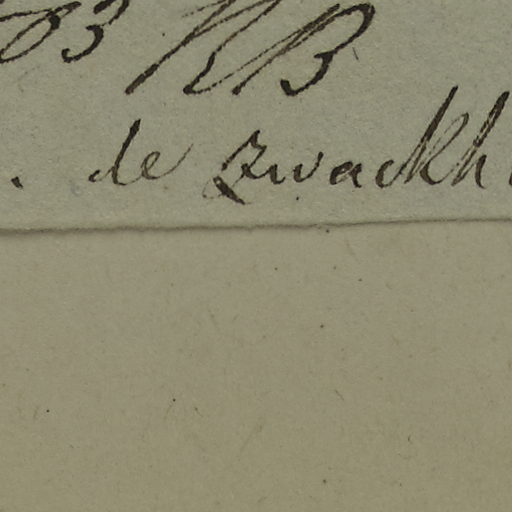 83 RB
. de Zwackh